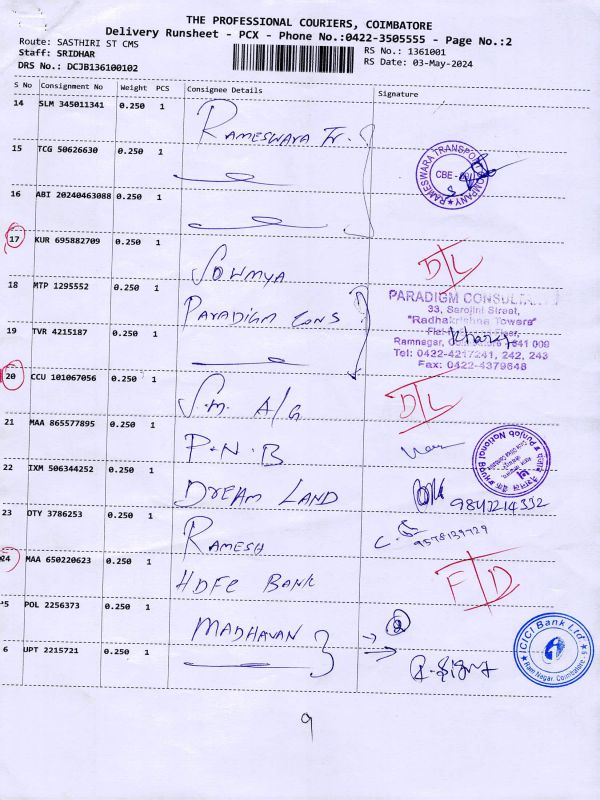 THE PROFESSIONAL COURIERS, COIMBATORE
Delivery Runsheet - PCX - Phone No.:0422-3505555 - Page No.:2
Route: SASTHIRI ST CMS
Staff: SRIDHAR
DRS No.: DCJB136100102
RS No.: 1361001
RS Date: 03-May-2024
S No Consignment No Weight PCS Consignee Details Signature
14 SLM 345011341 0.250 1 RAMESWARA Tr.
15 TCG 50626630 0.250 1
RAMESWARA TRANSPORT COMPANY
CBE
16 ABI 20240463088 0.250 1
17 KUR 695882709 0.250 1 SOWMYA D/L
18 MTP 1295552 0.250 1 PARADIGM CONS
PARADIGM CONSULTANT
33, Sarojini Street,
"Radhakrishna Towers"
Floor,
Ramnagar, 641 009
Tel: 0422-4217241, 242, 243
Fax: 0422-4379648
19 TVR 4215187 0.250 1
20 CCU 101067056 0.250 1 S.M. A/G D/L
21 MAA 865577895 0.250 1 P.N.B
Punjab National Bank
22 IXM 506344252 0.250 1 DREAM LAND
23 DTY 3786253 0.250 1 RAMESH 9578139729
24 MAA 650220623 0.250 1 HDFC BANK F/D
5 POL 2256373 0.250 1 MADHAVAN
6 UPT 2215721 0.250 1
ICICI Bank Ltd
Ram Nagar, Coimbatore - 9
9